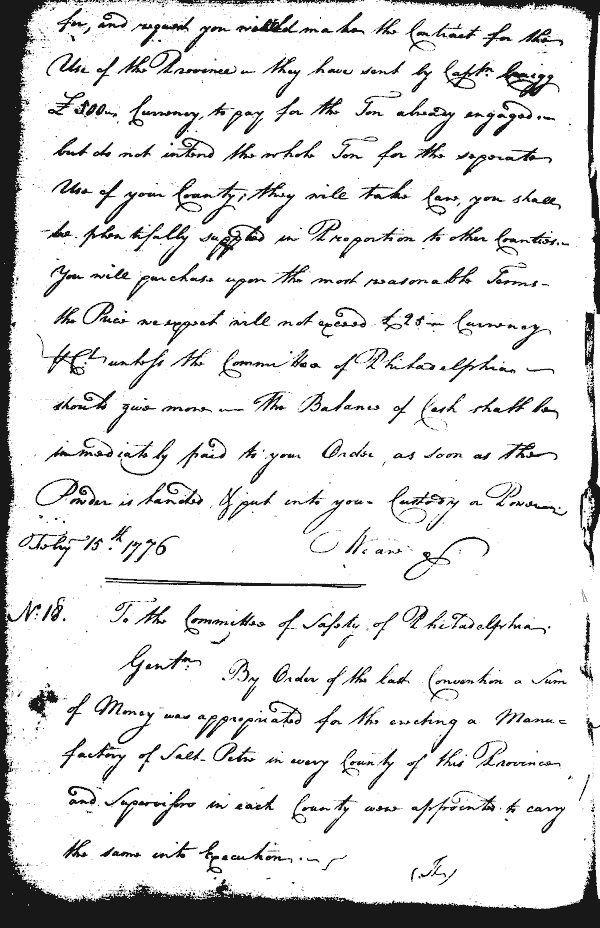 for, and request you would make the Contract for the
Use of the Province - they have sent by Captn. Cragg
£ 500 - Currency, to pay for the Ton already engaged. -
but do not intend the whole Ton for the seperate
Use of your County; they will take Care, you shall
be plentifully supplied in Proportion to other Counties. -
You will purchase upon the most reasonable Terms -
the Price we expect will not exceed £ 25 - Currency
⅌ Ct. unless the Committee of Philadelphia -
should give more - The Balance of Cash shall be
immediately paid to your Order, as soon as the
Powder is handed, & put into your Custody or Power -
Feby. 15.th 1776 We are &
No. 18. To the Committee of Safety of Philadelphia.
Gentn. By Order of the last Convention a Sum
of Money was appropriated for the erecting a Manu=
factory of Salt-Petre in every County of this Province
and Supervisors in each County were appointed to carry
the same into Execution. -